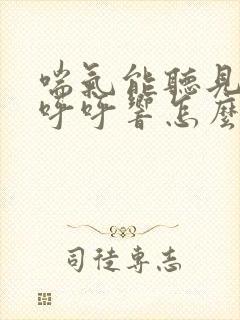 喘氣能聽見
呼呼響怎麼
司徒專志